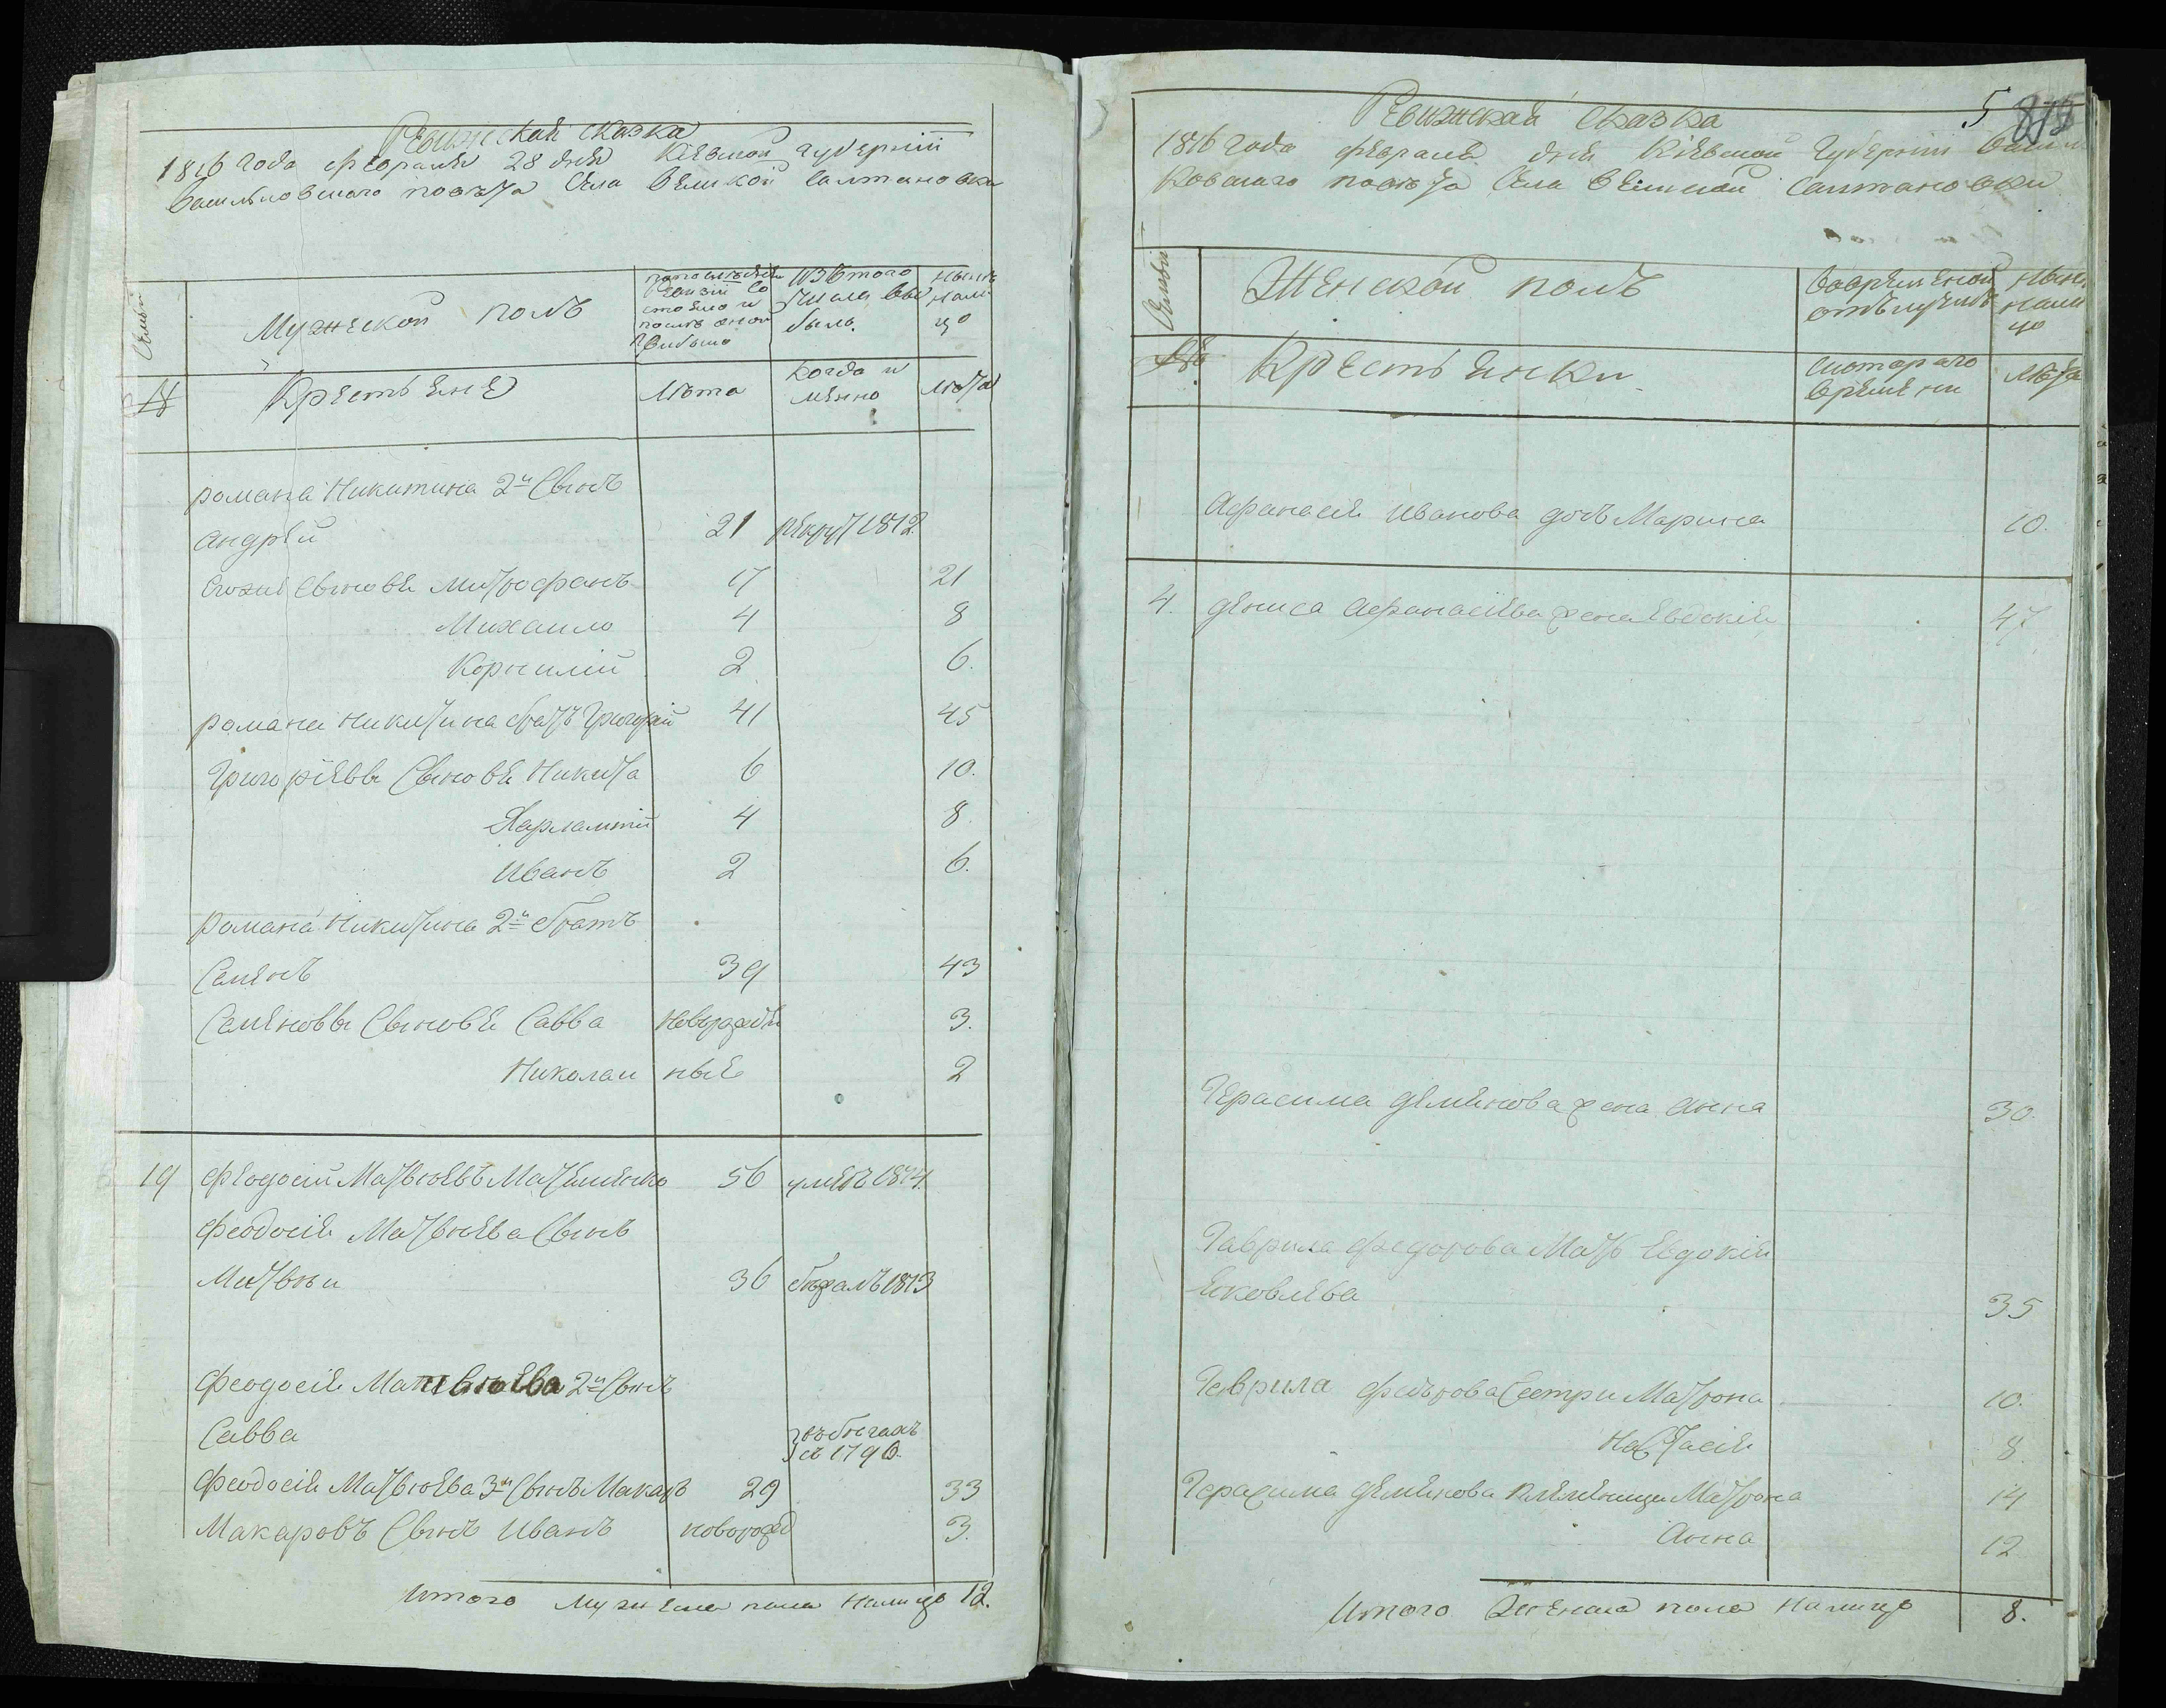 Ревижская сказка
1816 года февраля 28 дня Кіевской губерніи
Васильковского повета Села Великой Салтановки
Семьи
Мужеской полъ
по последней
Ревизіи со
стояло и
после оной
прибыло
Изъ того
числа вы
было.
ныне
нали
цо
№
Крестьяне
Лета
Когда и
менно
лета
романа Никитина 2й Сынъ
андрей 21 рекрут 1812
Сыновья Митрофанъ 17 21
Михаило 4 8
Корнилій 2 6.
романа Никитина братъ Григорій 41 45
Григоріевы Сыновья Никита 6 10.
Харлампій 4 8
Иванъ 2 6.
романа Никитина 2й братъ
Семенъ 39 43
Семеновы Сыновья Савва Новорожде 3.
Николаи ные 2
19 Феодосій Матвеевъ 56 умеръ 1814.
Феодосія Матвеева Сынъ
Матвеи 36 бежалъ 1813
Феодосія Матвеева 2й Сынъ
Савва въ бегахъ
съ 1796.
Феодосія Матвеева 3й Сынъ Макаръ 29 33
Макаровъ Сынъ Иванъ новорожд 3.
Итого мужеска пола Налицо 12.
5 815
Ревижская сказка
1816 года февраля дня Кіевской Губерніи Василь
ковского повета Села Великой Салтановки
Семьи
Женской полъ
Вовременной
отлучке
Ныне
нали
цо
№
Крестьянки
Скотораго
времени
Лета
Афанасія Иванова дочь Марина 10.
4. дениса Афанасіева жена Евдокія 47
Герасима деменова жена Анна 30.
Гаврила Федорова Мать Евдокія
Яковлева 35
Гаврила Федорова Сестри Матрона 10.
Настасія 8
Герасима деменова племеници Матрона 14
Анна 12
Итого Женска пола Налицо 8.